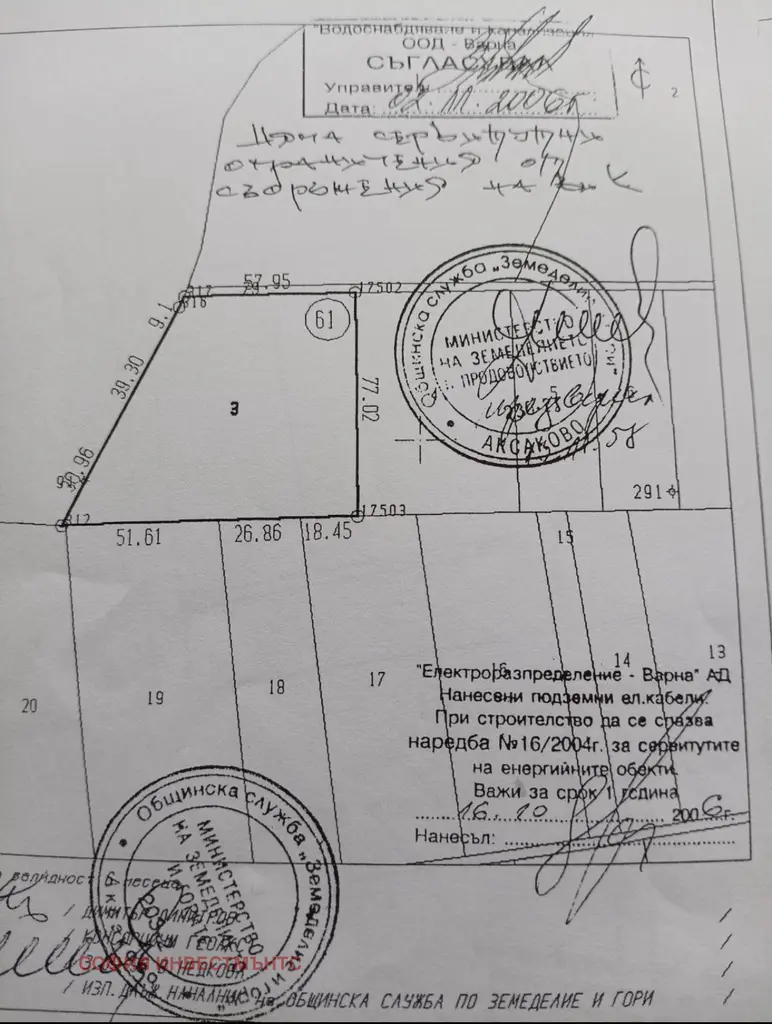 "Водоснабдяване и канализация
ООД - Варна
СЪГЛАСУВАЛ
Управител:
Дата: 02.11.2006г.
2
Няма сервитутни
ограничения от
съоръжения на ВиК
57.95
317
316
17502
61
9.1
39.30
77.02
3
Общинска служба „Земеделие
МИНИСТЕРСТВО
НА ЗЕМЕДЕЛИЕТО
ПРОДОВОЛСТВИЕТО
АКСАКОВО
5
6
291
312
17503
51.61
26.86
18.45
15
13
14
16
17
18
19
20
"Електроразпределение - Варна" АД
Нанесени подземни ел.кабели.
При строителство да се спазва
наредба №16/2004г. за сервитутите
на енергийните обекти.
Важи за срок 1 година
16.10 2006г.
Нанесъл:
Общинска служба „Земеделие и гори"
МИНИСТЕРСТВО
НА ЗЕМЕДЕЛИЕ
И ГОРИТЕ
валидност 6 месеца
/ ДИМИТЪР ДИМИТРОВ /
СОФИЯ ИНВЕСТМЪНТС
/ ИЗП. ДЛЪЖ НАЧАЛНИК на ОБЩИНСКА СЛУЖБА ПО ЗЕМЕДЕЛИЕ И ГОРИ /